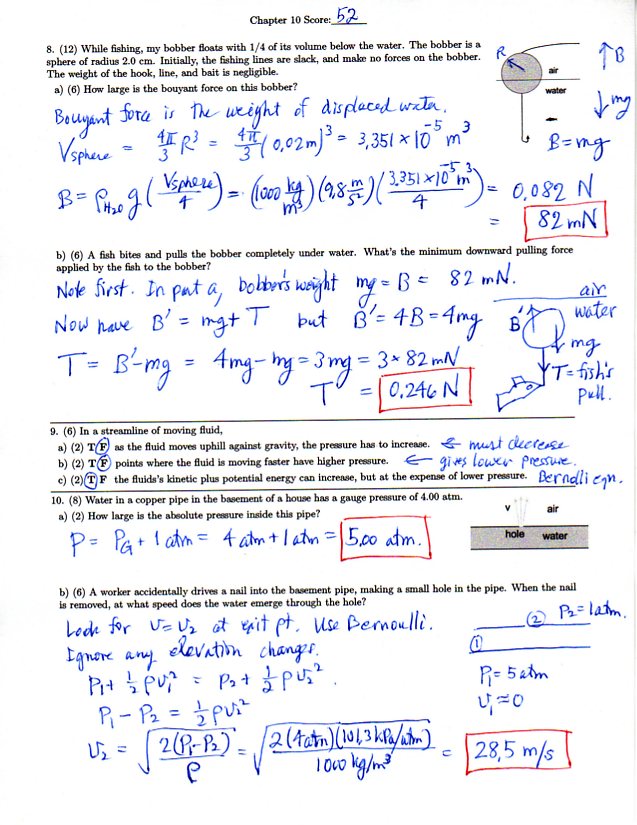 Chapter 10 Score: 52
8. (12) While fishing, my bobber floats with 1/4 of its volume below the water. The bobber is a
sphere of radius 2.0 cm. Initially, the fishing lines are slack, and make no forces on the bobber.
The weight of the hook, line, and bait is negligible.
R
air
water
↑B
↓mg
B=mg
a) (6) How large is the bouyant force on this bobber?
Bouyant force is the weight of displaced water.
Vsphere = 4π/3 R³ = 4π/3 (0,02m)³ = 3,351 × 10⁻⁵ m³
B = ρH20 g (Vsphere/4) = (1000 kg/m³)(9,8 m/s²)(3.351×10⁻⁵m³/4) = 0,082 N
= 82 mN
b) (6) A fish bites and pulls the bobber completely under water. What's the minimum downward pulling force
applied by the fish to the bobber?
Note first. In part a, bobber's weight mg = B = 82 mN.
Now have B' = mg + T but B' = 4B = 4mg
T = B'-mg = 4mg - mg = 3mg = 3 × 82mN
T = 0.246 N
air
water
B'
mg
T = fish's
pull.
9. (6) In a streamline of moving fluid,
a) (2) T F as the fluid moves uphill against gravity, the pressure has to increase. ← must decrease
b) (2) T F points where the fluid is moving faster have higher pressure. ← gives lower pressure.
c) (2) T F the fluids's kinetic plus potential energy can increase, but at the expense of lower pressure. Bernolli eqn.
10. (8) Water in a copper pipe in the basement of a house has a gauge pressure of 4.00 atm.
a) (2) How large is the absolute pressure inside this pipe?
v
air
hole
water
P = PG + 1 atm = 4 atm + 1 atm = 5,00 atm.
b) (6) A worker accidentally drives a nail into the basement pipe, making a small hole in the pipe. When the nail
is removed, at what speed does the water emerge through the hole?
Look for v=v₂ at exit pt. Use Bernoulli.
Ignore any elevation changes.
P₁ + ½ρv₁² = P₂ + ½ρv₂².
P₁ - P₂ = ½ρv₂²
v₂ = √(2(P₁-P₂)/ρ) = √(2(4atm)(101,3kPa/atm)/1000 kg/m³) = 28,5 m/s
② P₂ = 1atm.
①
P₁ = 5 atm
v₁ ≈ 0